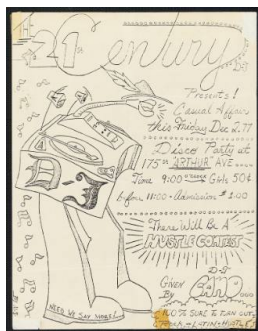 21st Century
Presents!
Casual Affair
This Friday Dec 2, 77
Disco Party at
175th "ARTHUR" AVE
Time 9:00 O'CLOCK Girls 50¢
before 11:00 - Admission $1.00
There Will Be A
HUSTLE CONTEST
GIVEN
By
D-J
NEED WE SAY MORE!
SURE TO TURN OUT
LATIN HUSTLE